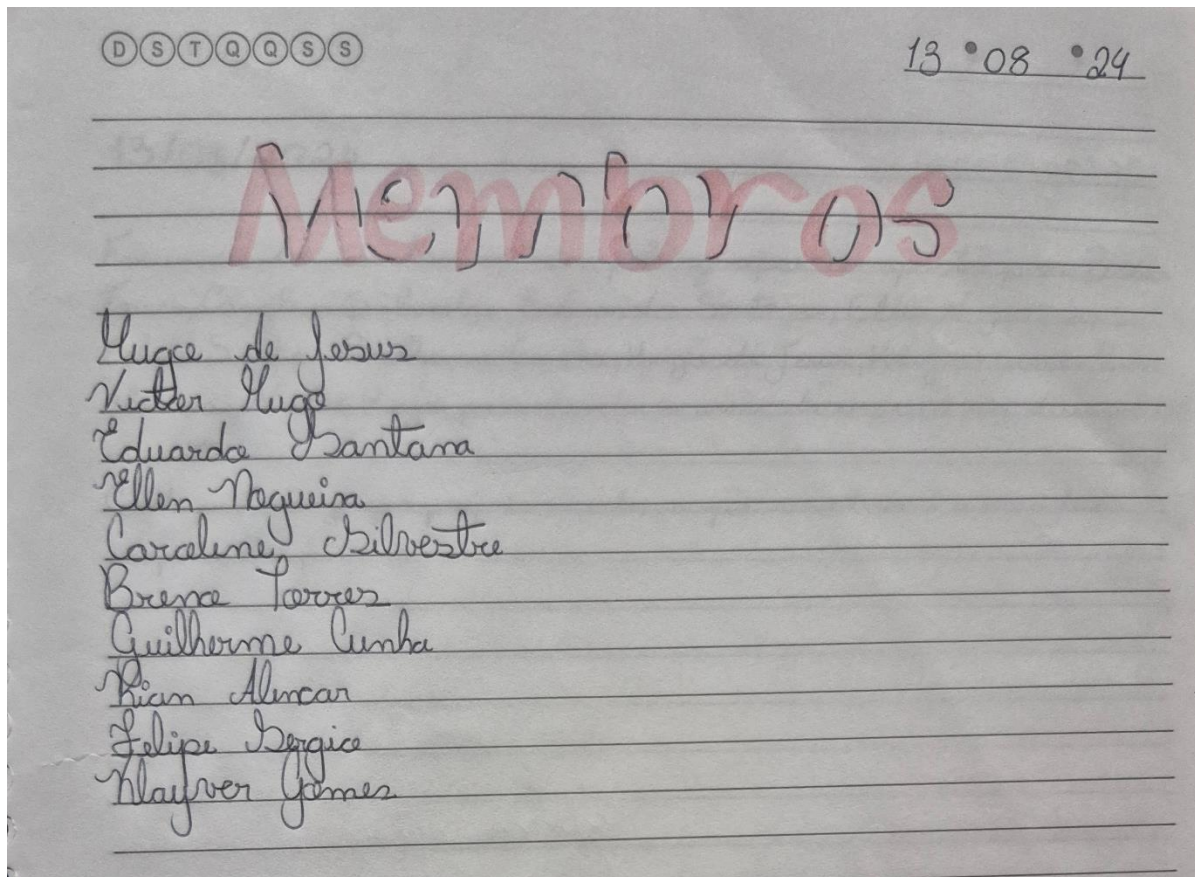 D S T Q Q S S
13 08 24
Membros
Hugo de Jesus
Victor Hugo
Eduardo Santana
Ellen Nogueira
Caroline Silvestre
Breno Torres
Guilherme Cunha
Rian Alencar
Felipe Sergio
Klayver Gomes